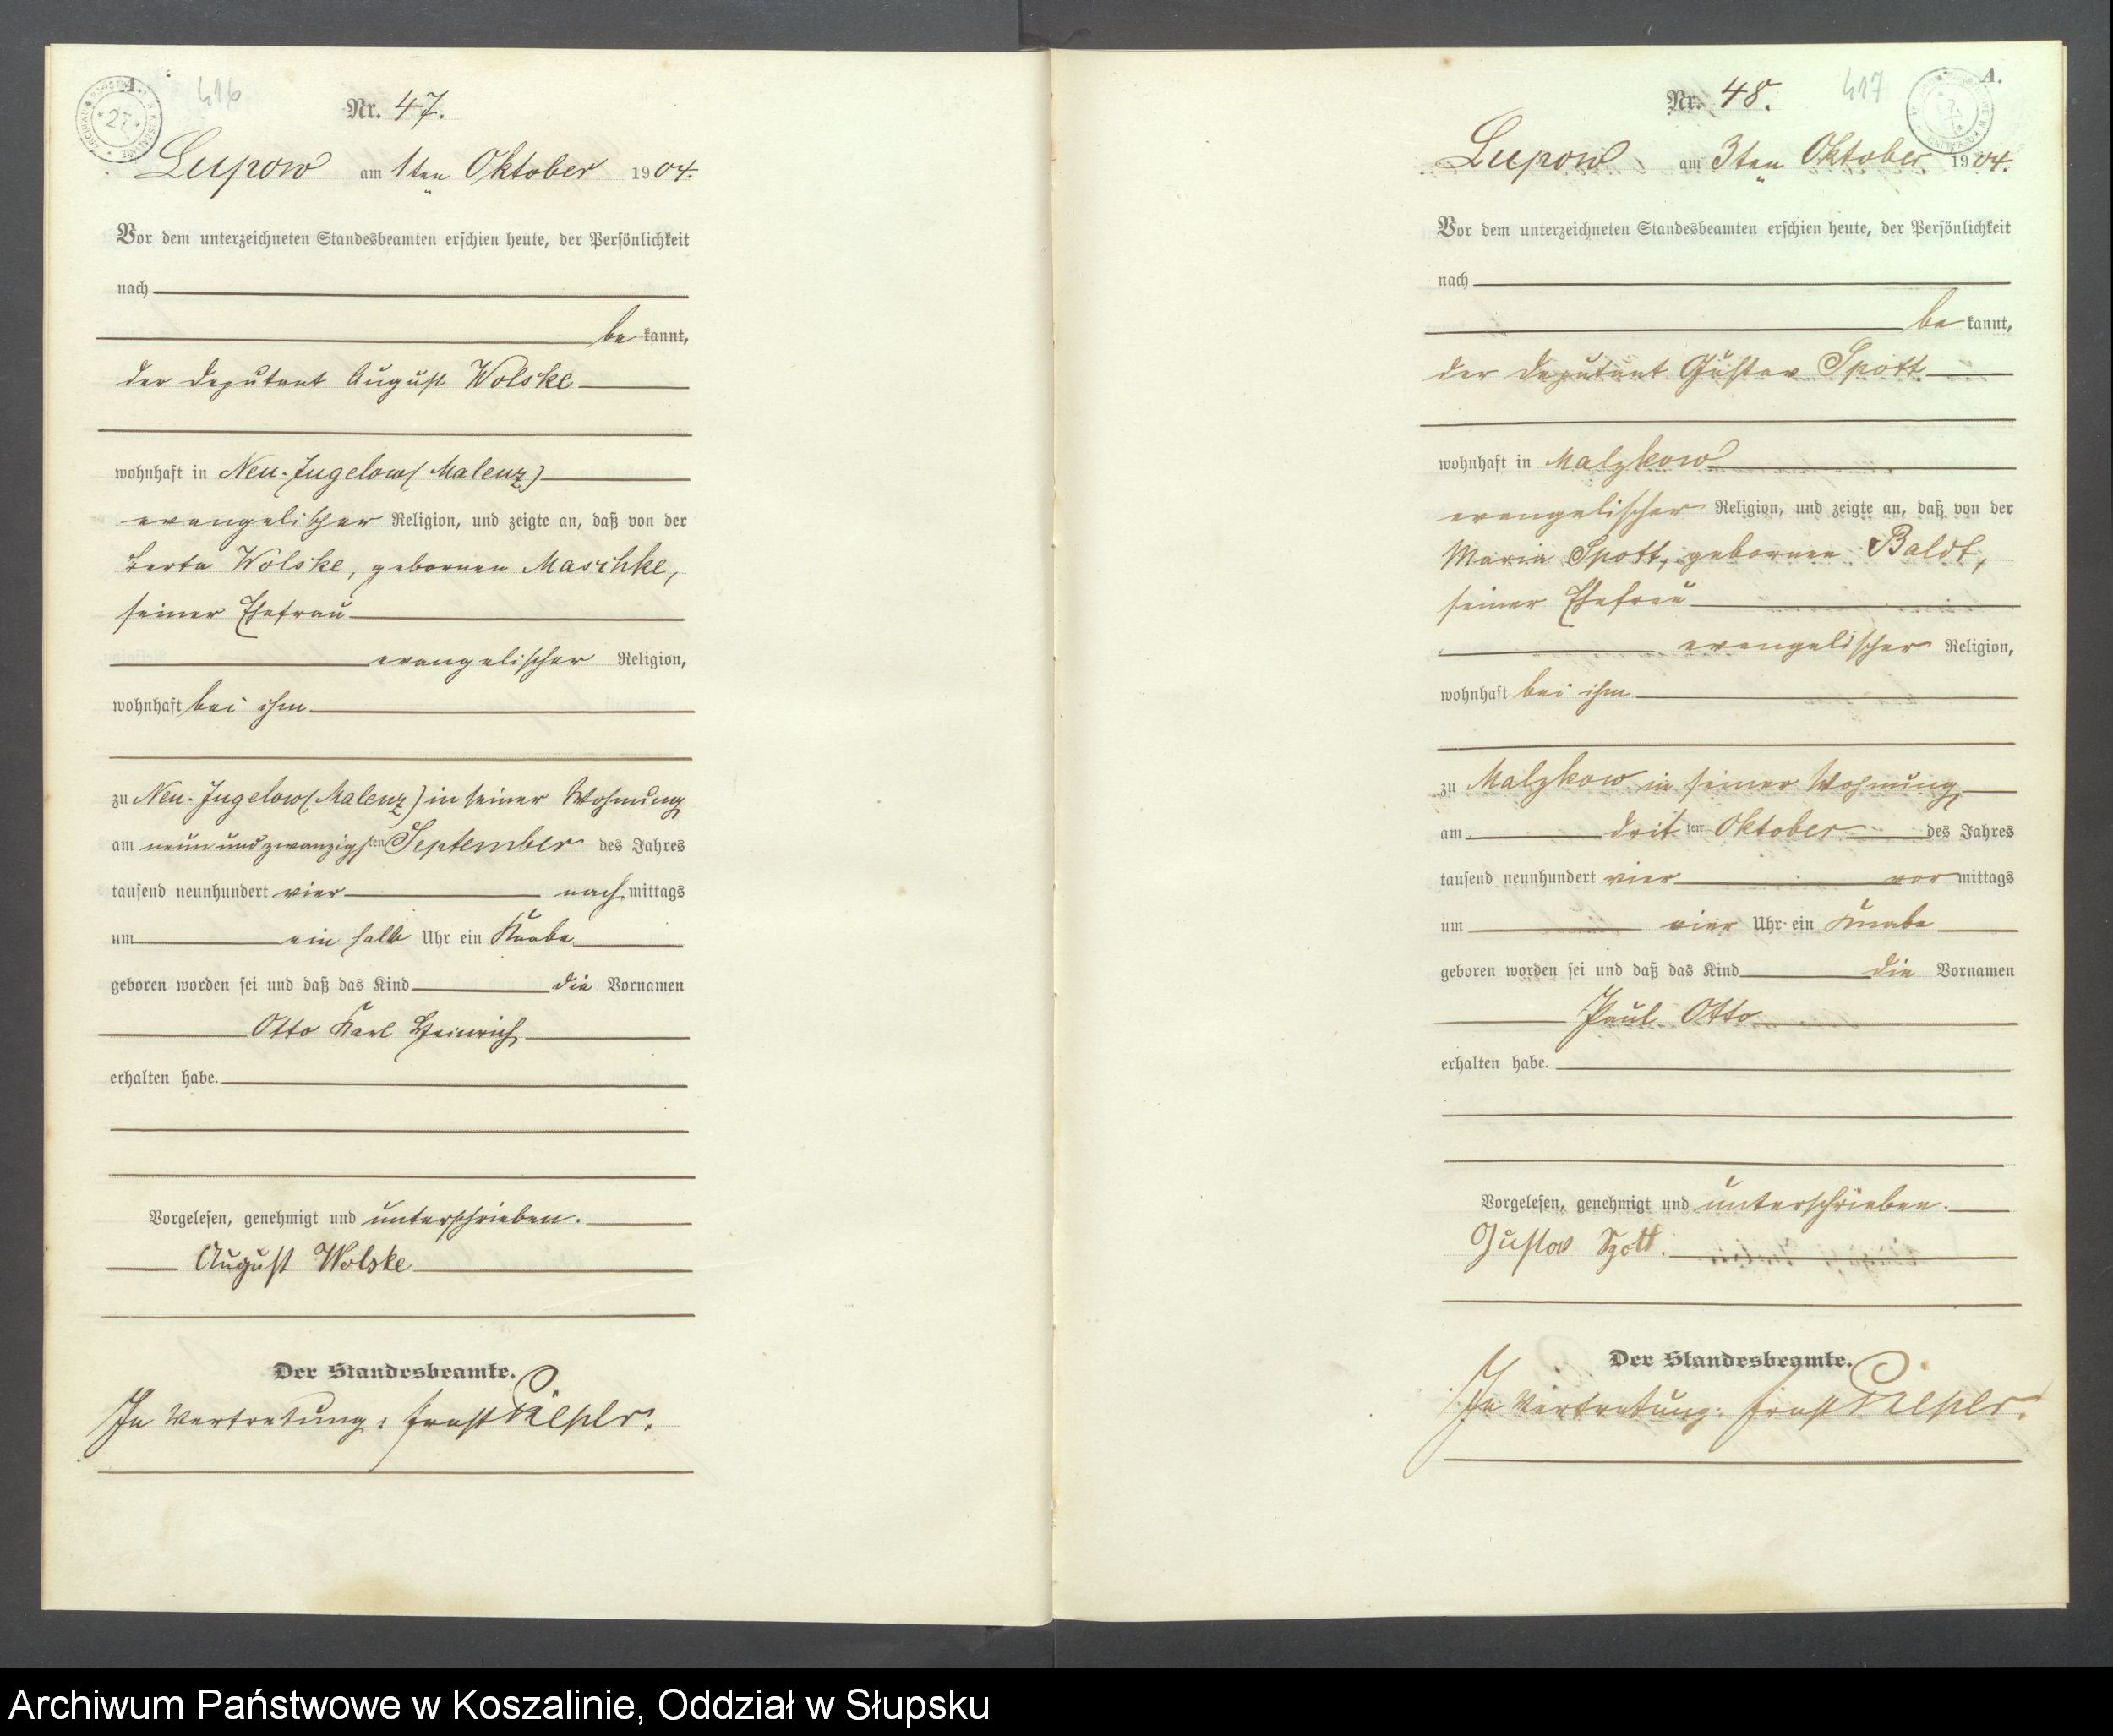 A.
416
27
Nr. 47.
Lupow am 1ten Oktober 1904.
Vor dem unterzeichneten Standesbeamten erschien heute, der Persönlichkeit
nach
be kannt,
der Deputant August Wolske
wohnhaft in Neu-Jugelow (Malenz)
evangelischer Religion, und zeigte an, daß von der
Berta Wolske, gebornen Maschke,
seiner Ehefrau
evangelischer Religion,
wohnhaft bei ihm
zu Neu-Jugelow (Malenz) in seiner Wohnung
am neunundzwanzigsten September des Jahres
tausend neunhundert vier nach mittags
um ein halb Uhr ein Knabe
geboren worden sei und daß das Kind die Vornamen
Otto Karl Heinrich
erhalten habe.
Vorgelesen, genehmigt und unterschrieben.
August Wolske
Der Standesbeamte.
In Vertretung: Ernst
A.
417
Nr. 48.
Lupow am 3ten Oktober 1904.
Vor dem unterzeichneten Standesbeamten erschien heute, der Persönlichkeit
nach
be kannt,
der Deputant Gustav Spott
wohnhaft in Malzkow
evangelischer Religion, und zeigte an, daß von der
Maria Spott, gebornen Baldt,
seiner Ehefrau
evangelischer Religion,
wohnhaft bei ihm
zu Malzkow in seiner Wohnung
am dritten Oktober des Jahres
tausend neunhundert vier vor mittags
um vier Uhr ein Knabe
geboren worden sei und daß das Kind die Vornamen
Paul Otto
erhalten habe.
Vorgelesen, genehmigt und unterschrieben.
Gustav Spott.
Der Standesbeamte.
In Vertretung: Ernst
Archiwum Państwowe w Koszalinie, Oddział w Słupsku